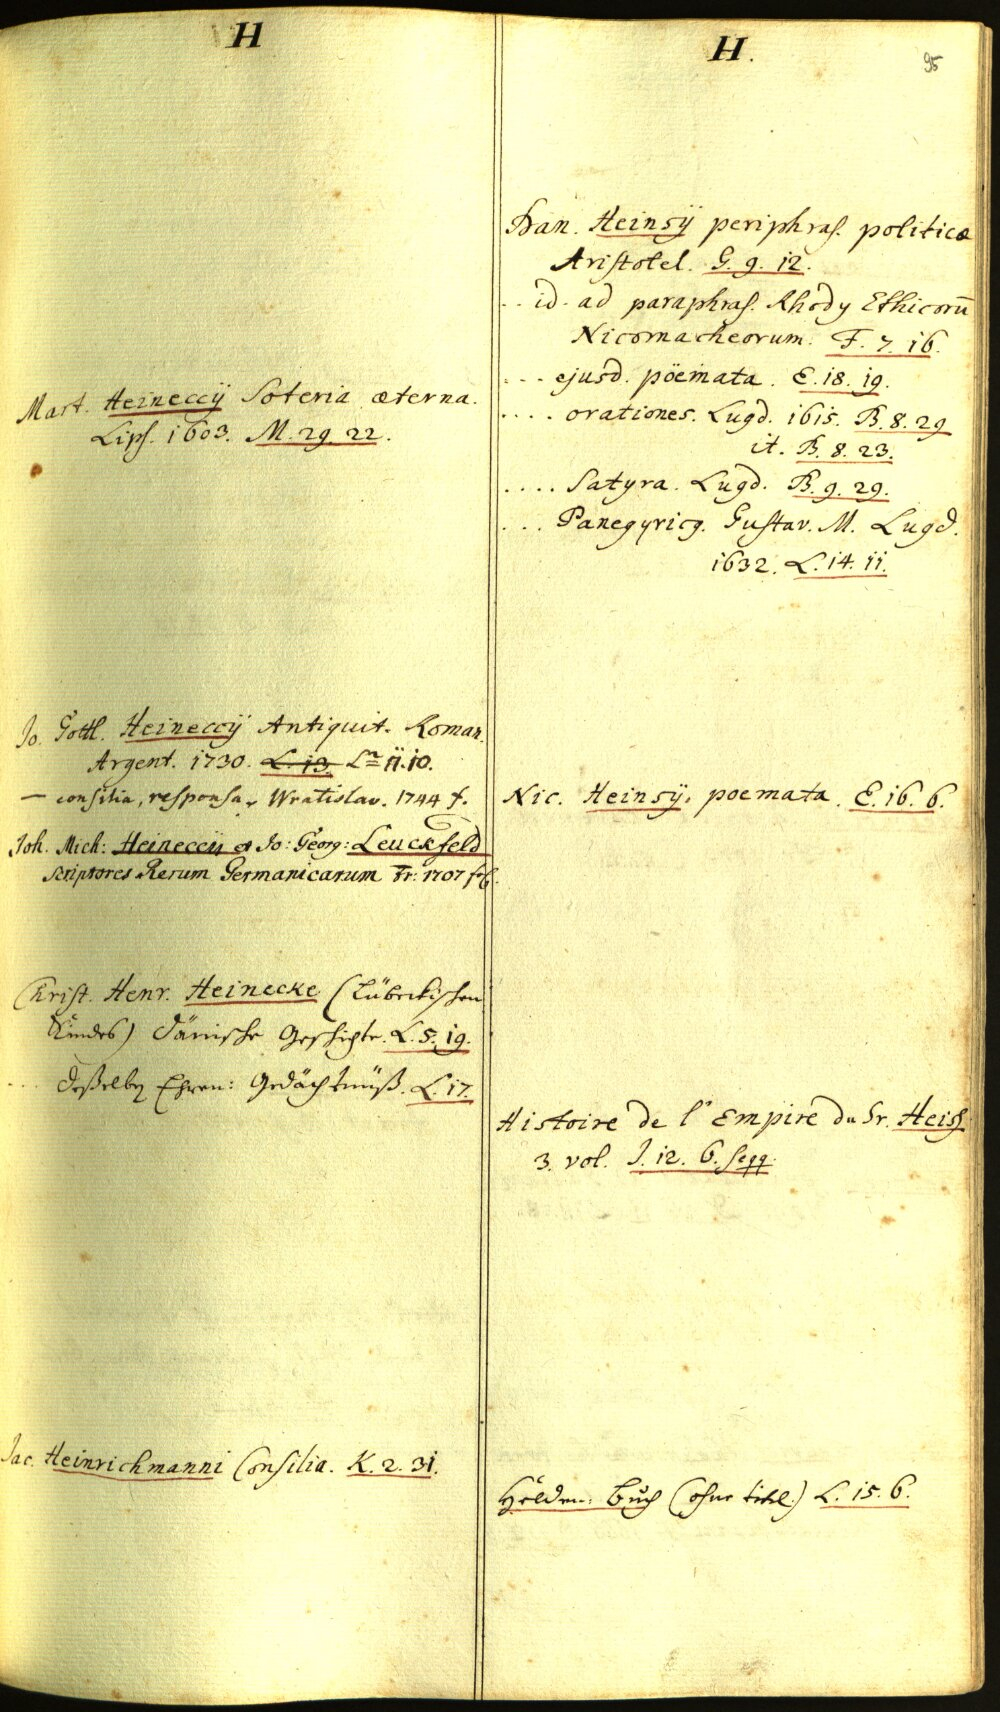 H
Mart. Heineccÿ Soteria æterna.
Lips. 1603. M. 29. 22.
Jo. Gottl. Heineccÿ Antiquit. Roman.
Argent. 1730. L. 13. 11.10.
— consilia, responsa, Wratislav. 1744 f.
Joh. Mich: Heineccii et Jo: Georg: Leuckfeld
scriptores Rerum Germanicarum Fr: 1707
Christ. Henr. Heinecke (Lübeckischen
Kindes) Dänische Geschichte. L. 5. 19.
... deßelben Ehren: Gedächtnüß. L. 17.
Jac. Heinrichmanni Consilia. K. 2. 31.
H.
95
Dan. Heinsÿ periphras. politicæ
Aristotel. G. 9. 12.
.. id. ad paraphras. Rhody Ethicorū
Nicomacheorum. F. 7. 16.
... ejusd. pöemata. E. 18. 19.
.... orationes. Lugd. 1615. B. 8. 29
it. B. 8. 23.
.... Satyra. Lugd. B. 9. 29.
... Panegyricg. Gustav. M. Lugd.
1632. L. 14. 11.
Nic. Heinsÿ. poemata. E. 16. 6.
Histoire de l'Empire du Sr. Heiss
3. vol. J. 12. 6. seqq.
Helden: Buch (ohne titel.) L. 15. 6.